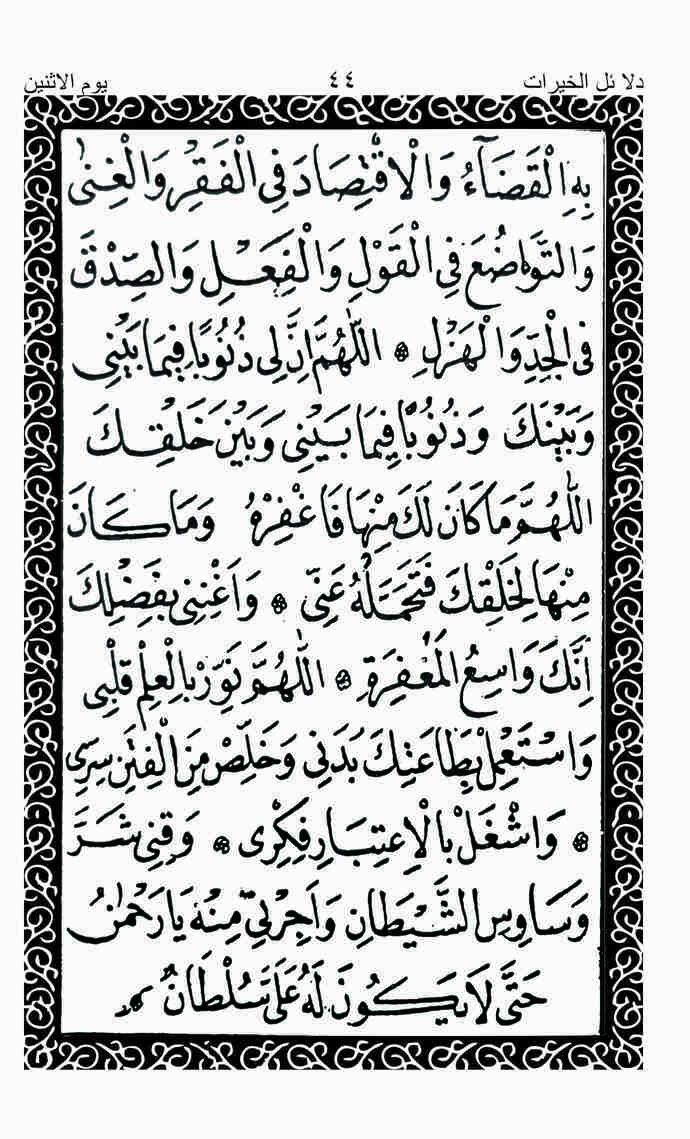 دلائل الخيرات ٤٤ يوم الاثنين
بِهِ الْقَضَآءُ وَالْاِقْتِصَادَ فِي الْفَقْرِ وَالْغِنٰى
وَالتَّوَاضُعَ فِي الْقَوْلِ وَالْفِعْلِ وَالصِّدْقَ
فِى الْجِدِّ وَالْهَزْلِ ۞ اَللّٰهُمَّ اِنَّ لِى ذُنُوبًا فِيمَا بَيْنِى
وَبَيْنَكَ وَذُنُوبًا فِيمَا بَيْنِى وَبَيْنَ خَلْقِكَ
اَللّٰهُمَّ مَا كَانَ لَكَ مِنْهَا فَاغْفِرْهُ وَمَا كَانَ
مِنْهَا لِخَلْقِكَ فَتَحَمَّلْهُ عَنِّى ۞ وَاَغْنِنِى بِفَضْلِكَ
اِنَّكَ وَاسِعُ الْمَغْفِرَةِ ۞ اَللّٰهُمَّ نَوِّرْ بِالْعِلْمِ قَلْبِى
وَاسْتَعْمِلْ بِطَاعَتِكَ بَدَنِى وَخَلِّصْ مِنَ الْفِتَنِ سِرِّى
۞ وَاشْغَلْ بِالْاِعْتِبَارِ فِكْرِى ۞ وَقِنِى شَرَّ
وَسَاوِسِ الشَّيْطَانِ وَاَجِرْنِى مِنْهُ يَا رَحْمٰنُ
حَتّٰى لَا يَكُونَ لَهُ عَلَىَّ سُلْطَانٌ